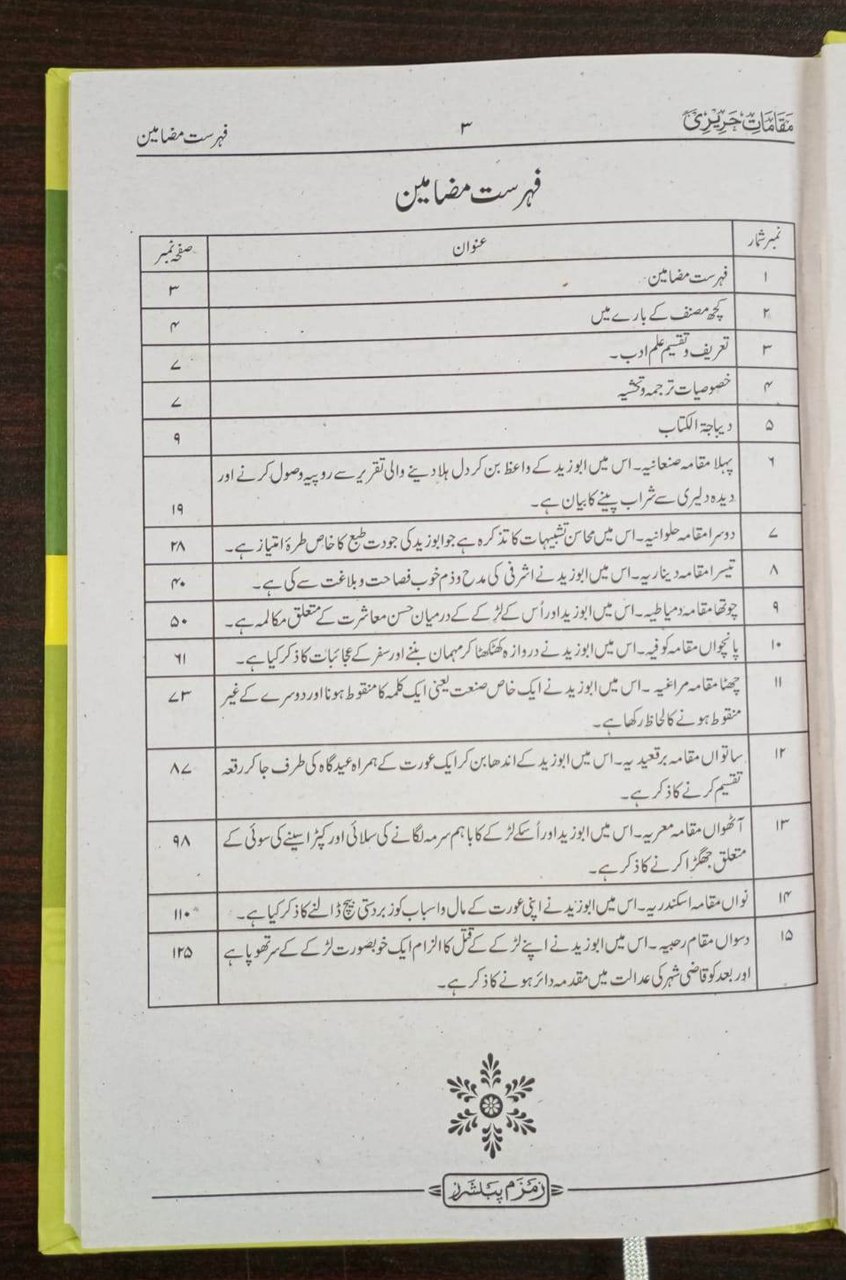 مقامات حریری ۳ فہرست مضامین
فہرست مضامین
نمبر شمار عنوان صفحہ نمبر
۱ فہرست مضامین ۳
۲ کچھ مصنف کے بارے میں ۴
۳ تعریف و تقسیم علم ادب۔ ۷
۴ خصوصیات ترجمہ و تحشیہ ۷
۵ دیباجۃ الکتاب ۹
۶ پہلا مقامہ صنعانیہ۔ اس میں ابوزید کے واعظ بن کر دل ہلا دینے والی تقریر سے روپیہ وصول کرنے اور
دیدہ دلیری سے شراب پینے کا بیان ہے۔ ۱۹
۷ دوسرا مقامہ حلوانیہ۔ اس میں محاسن تشبیہات کا تذکرہ ہے جو ابوزید کی جودت طبع کا خاص طرۂ امتیاز ہے۔ ۲۸
۸ تیسرا مقامہ دیناریہ۔ اس میں ابوزید نے اشرفی کی مدح و ذم خوب فصاحت و بلاغت سے کی ہے۔ ۴۰
۹ چوتھا مقامہ دمیاطیہ۔ اس میں ابوزید اور اُس کے لڑکے کے درمیان حسن معاشرت کے متعلق مکالمہ ہے۔ ۵۰
۱۰ پانچواں مقامہ کوفیہ۔ اس میں ابوزید نے دروازہ کھٹکھٹا کر مہمان بننے اور سفر کے عجائبات کا ذکر کیا ہے۔ ۶۱
۱۱ چھٹا مقامہ مراغیہ۔ اس میں ابوزید نے ایک خاص صنعت یعنی ایک کلمہ کا منقوط ہونا اور دوسرے کے غیر
منقوط ہونے کا لحاظ رکھا ہے۔ ۷۳
۱۲ ساتواں مقامہ برقعیدیہ۔ اس میں ابوزید کے اندھا بن کر ایک عورت کے ہمراہ عیدگاہ کی طرف جا کر رقعہ
تقسیم کرنے کا ذکر ہے۔ ۸۷
۱۳ آٹھواں مقامہ معریہ۔ اس میں ابوزید اور اُسکے لڑکے کا باہم سرمہ لگانے کی سلائی اور کپڑا سینے کی سوئی کے
متعلق جھگڑا کرنے کا ذکر ہے۔ ۹۸
۱۴ نواں مقامہ اسکندریہ۔ اس میں ابوزید نے اپنی عورت کے مال و اسباب کو زبردستی بیچ ڈالنے کا ذکر کیا ہے۔ ۱۱۰
۱۵ دسواں مقام رحبیہ۔ اس میں ابوزید نے اپنے لڑکے کے قتل کا الزام ایک خوبصورت لڑکے کے سر تھوپا ہے
اور بعد کو قاضی شہر کی عدالت میں مقدمہ دائر ہونے کا ذکر ہے۔ ۱۲۵
زمزم پبلشرز